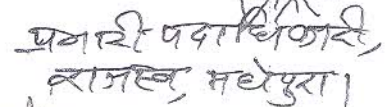 प्रभारी पदाधिकारी,
राजस्व, मधेपुरा।